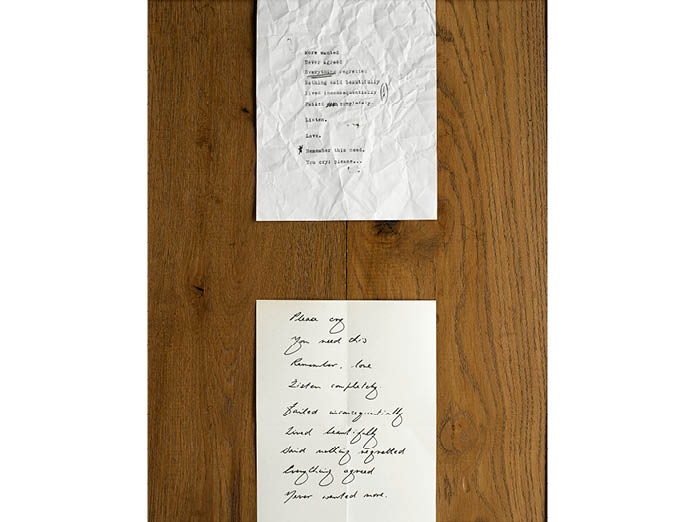 More wanted
Never agreed
Everything regretted
Nothing said beautifully
Lived inconsequentially
Failed completely.
Listen.
Love.
Remember this need.
You cry: please...
Please cry
You need this
Remember, love
Listen completely.
Failed inconsequentially
Lived beautifully
Said nothing regretted
Everything agreed
Never wanted more.